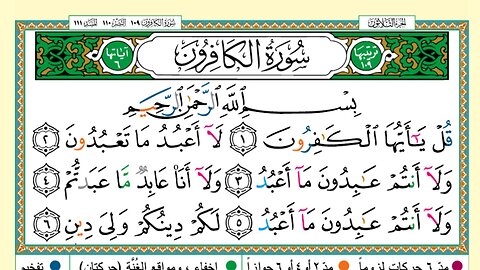 الجزء الثلاثون سورة الكافرون ١٠٩ النصر ١١٠ المسد ١١١
ترتيبها ١٠٩ سورة الكافرون آياتها ٦
بِسْمِ اللَّهِ الرَّحْمَٰنِ الرَّحِيمِ
قُلْ يَٰٓأَيُّهَا الْكَٰفِرُونَ ١ لَآ أَعْبُدُ مَا تَعْبُدُونَ ٢
وَلَآ أَنتُمْ عَٰبِدُونَ مَآ أَعْبُدُ ٣ وَلَآ أَنَا۠ عَابِدٌ مَّا عَبَدتُّمْ ٤
وَلَآ أَنتُمْ عَٰبِدُونَ مَآ أَعْبُدُ ٥ لَكُمْ دِينُكُمْ وَلِىَ دِينِ ٦
مدّ ٦ حركات لزوماً مدّ ٢ أو ٤ أو ٦ جوازاً إخفاء، ومواقع الغُنَّة (حركتان) تفخيم